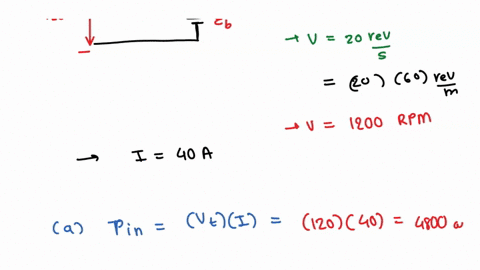 E_b
→ V = 20 rev/s
= (20) (60) rev/m
→ V = 1200 RPM
→ I = 40 A
(a) Pin = (V_t)(I) = (120)(40) = 4800 w